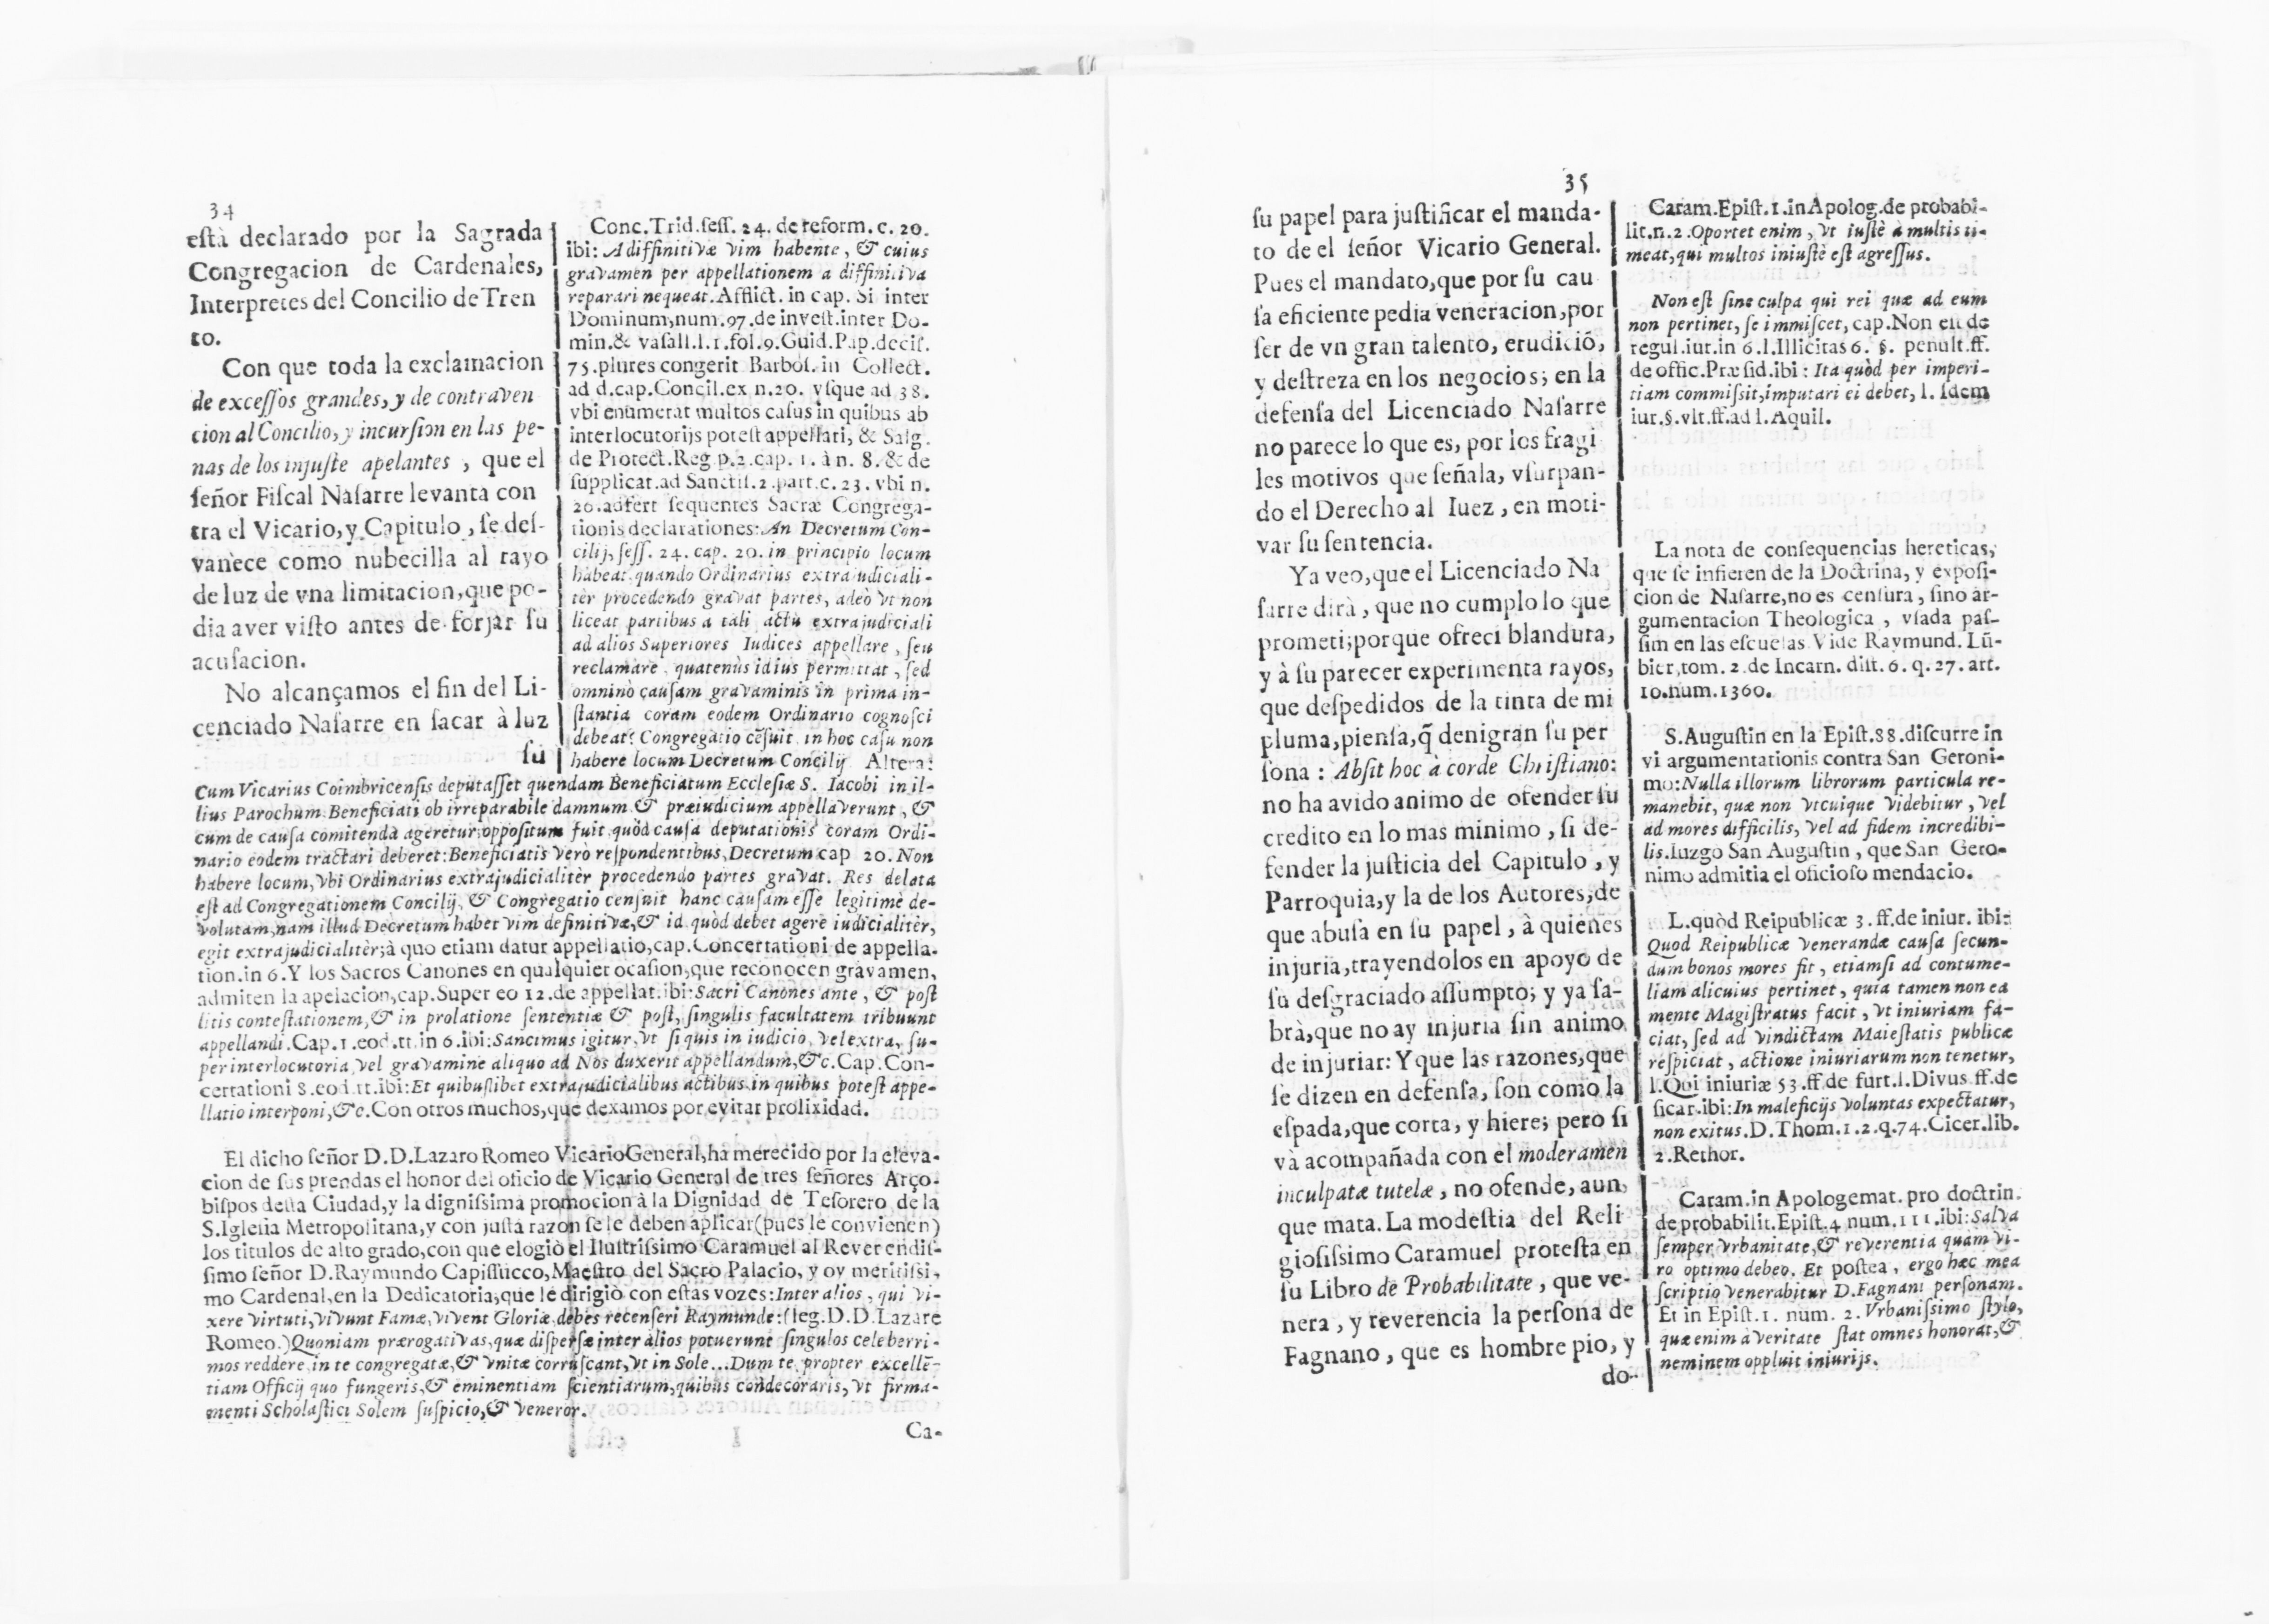 34
està declarado por la Sagrada
Congregacion de Cardenales,
Interpretes del Concilio de Tren
to.
Con que toda la exclamacion
de excessos grandes, y de contraven
cion al Concilio, y incursion en las pe-
nas de los injuste apelantes , que el
señor Fiscal Nasarre levanta con
tra el Vicario, y Capitulo , se des-
vanece como nubecilla al rayo
de luz de vna limitacion, que po-
dia aver visto antes de forjar su
acusacion.
No alcançamos el fin del Li-
cenciado Nasarre en sacar à luz
su
Conc. Trid. sess. 24. de reform. c. 20.
ibi: A diffinitivæ vim habente, & cuius
gravamen per appellationem a diffinitiva
reparari nequeat. Afflict. in cap. Si inter
Dominum, num. 97. de invest. inter Do-
min. & vasall. l. 1. fol. 9. Guid. Pap. decis.
75. plures congerit Barbos. in Collect.
ad d. cap. Concil. ex n. 20. vsque ad 38.
vbi enumerat multos casus in quibus ab
interlocutorijs potest appellari, & Salg.
de Protect. Reg. p. 2. cap. 1. à n. 8. & de
supplicat. ad Sanctis. 2. part. c. 23. vbi n.
20. adfert sequentes Sacræ Congrega-
tionis declarationes: An Decretum Con-
cilij, sess. 24. cap. 20. in principio locum
habeat, quando Ordinarius extrajudiciali-
tèr procedendo gravat partes, adeò vt non
liceat partibus a tali actu extrajudiciali
ad alios Superiores Iudices appellare, seu
reclamare, quatenùs id ius permittat, sed
omninò causam gravaminis in prima in-
stantia coram eodem Ordinario cognosci
debeat? Congregatio cẽsuit in hoc casu non
habere locum Decretum Concilij. Altera:
Cum Vicarius Coimbricensis deputasset quendam Beneficiatum Ecclesiæ S. Iacobi in il-
lius Parochum. Beneficiati ob irreparabile damnum & præiudicium appellaverunt, &
cum de causa comitenda ageretur, oppositum fuit, quòd causa deputationis coram Ordi-
nario eodem tractari deberet: Beneficiatis verò respondentibus, Decretum cap 20. Non
habere locum, vbi Ordinarius extrajudicialitèr procedendo partes gravat. Res delata
est ad Congregationem Concilij, & Congregatio censuit hanc causam esse legitimè de-
volutam, nam illud Decretum habet vim definitivæ, & id quòd debet agere iudicialitèr,
egit extrajudicialitèr; à quo etiam datur appellatio, cap. Concertationi de appella-
tion. in 6. Y los Sacros Canones en qualquier ocasion, que reconocen gravamen,
admiten la apelacion, cap. Super eo 12. de appellat. ibi: Sacri Canones ante, & post
litis contestationem, & in prolatione sententiæ & post, singulis facultatem tribuunt
appellandi. Cap. 1. eod. tt. in 6. ibi: Sancimus igitur, vt si quis in iudicio, vel extra, su-
per interlocutoria, vel gravamine aliquo ad Nos duxerit appellandum, &c. Cap. Con-
certationi 8. eod. tt. ibi: Et quibuslibet extrajudicialibus actibus in quibus potest appe-
llatio interponi, &c. Con otros muchos, que dexamos por evitar prolixidad.
El dicho señor D. D. Lazaro Romeo Vicario General, ha merecido por la eleva-
cion de sus prendas el honor del oficio de Vicario General de tres señores Arço-
bispos desta Ciudad, y la dignissima promocion à la Dignidad de Tesorero de la
S. Iglesia Metropolitana, y con justa razon se le deben aplicar (pues le convienen)
los titulos de alto grado, con que elogiò el Ilustrissimo Caramuel al Reverendis-
simo señor D. Raymundo Capissucco, Maestro del Sacro Palacio, y oy meritissi-
mo Cardenal, en la Dedicatoria, que le dirigiò con estas vozes: Inter alios, qui vi-
xere virtuti, vivunt Famæ, vivent Gloriæ, debes recenseri Raymunde: (leg. D. D. Lazare
Romeo.) Quoniam prærogativas, quæ dispersæ inter alios potuerunt singulos celeberri-
mos reddere, in te congregatæ, & vnitæ corruscant, vt in Sole... Dum te propter excellẽ-
tiam Officij quo fungeris, & eminentiam scientiarum, quibus condecoraris, vt firma-
menti Scholastici Solem suspicio, & veneror.
Ca-
35
su papel para justificar el manda-
to de el señor Vicario General.
Pues el mandato, que por su cau
sa eficiente pedia veneracion, por
ser de vn gran talento, erudiciõ,
y destreza en los negocios; en la
defensa del Licenciado Nasarre
no parece lo que es, por los fragi
les motivos que señala, vsurpan-
do el Derecho al Iuez, en moti-
var su sentencia.
Ya veo, que el Licenciado Na
sarre dirà, que no cumplo lo que
prometi; porque ofreci blandura,
y à su parecer experimenta rayos,
que despedidos de la tinta de mi
pluma, piensa, q̃ denigran su per
sona : Absit hoc à corde Christiano:
no ha avido animo de ofender su
credito en lo mas minimo, si de-
fender la justicia del Capitulo, y
Parroquia, y la de los Autores, de
que abusa en su papel, à quienes
injuria, trayendolos en apoyo de
su desgraciado assumpto; y ya sa-
brà, que no ay injuria sin animo
de injuriar: Y que las razones, que
se dizen en defensa, son como la
espada, que corta, y hiere; pero si
và acompañada con el moderamen
inculpatæ tutelæ, no ofende, aun
que mata. La modestia del Reli
giosissimo Caramuel protesta en
su Libro de Probabilitate, que ve-
nera, y reverencia la persona de
Fagnano, que es hombre pio, y
do-
Caram. Epist. 1. in Apolog. de probabi-
lit. n. 2. Oportet enim, vt iustè à multis ti-
meat, qui multos iniustè est agressus.
Non est sine culpa qui rei quæ ad eum
non pertinet, se immiscet, cap. Non est de
regul. iur. in 6. l. Illicitas 6. §. penult. ff.
de offic. Præsid. ibi: Ita quòd per imperi-
tiam commissit, imputari ei debet, l. Idem
iur. §. vlt. ff. ad l. Aquil.
La nota de consequencias hereticas,
que se infieren de la Doctrina, y exposi-
cion de Nasarre, no es censura, sino ar-
gumentacion Theologica, vsada pas-
sim en las escuelas. Vide Raymund. Lũ-
bier, tom. 2. de Incarn. dist. 6. q. 27. art.
10. num. 1360.
S. Augustin en la Epist. 88. discurre in
vi argumentationis contra San Geroni-
mo: Nulla illorum librorum particula re-
manebit, quæ non vtcuique videbitur, vel
ad mores difficilis, vel ad fidem incredibi-
lis. Iuzgo San Augustin, que San Gero-
nimo admitia el oficioso mendacio.
L. quòd Reipublicæ 3. ff. de iniur. ibi:
Quod Reipublicæ venerandæ causa secun-
dum bonos mores fit, etiamsi ad contume-
liam alicuius pertinet, quia tamen non ea
mente Magistratus facit, vt iniuriam fa-
ciat, sed ad vindictam Maiestatis publicæ
respiciat, actione iniuriarum non tenetur,
l. Qui iniuriæ 53. ff. de furt. l. Divus ff. de
sicar. ibi: In maleficijs voluntas expectatur,
non exitus. D. Thom. 1. 2. q. 74. Cicer. lib.
2. Rethor.
Caram. in Apologemat. pro doctrin.
de probabilit. Epist. 4 num. 111. ibi: Salva
semper vrbanitate, & reverentia quam vi-
ro optimo debeo. Et postea, ergo hæc mea
scriptio venerabitur D. Fagnani personam.
Et in Epist. 1. num. 2. Vrbanissimo stylo,
quæ enim à veritate stat omnes honorat, &
neminem oppluit iniurijs.